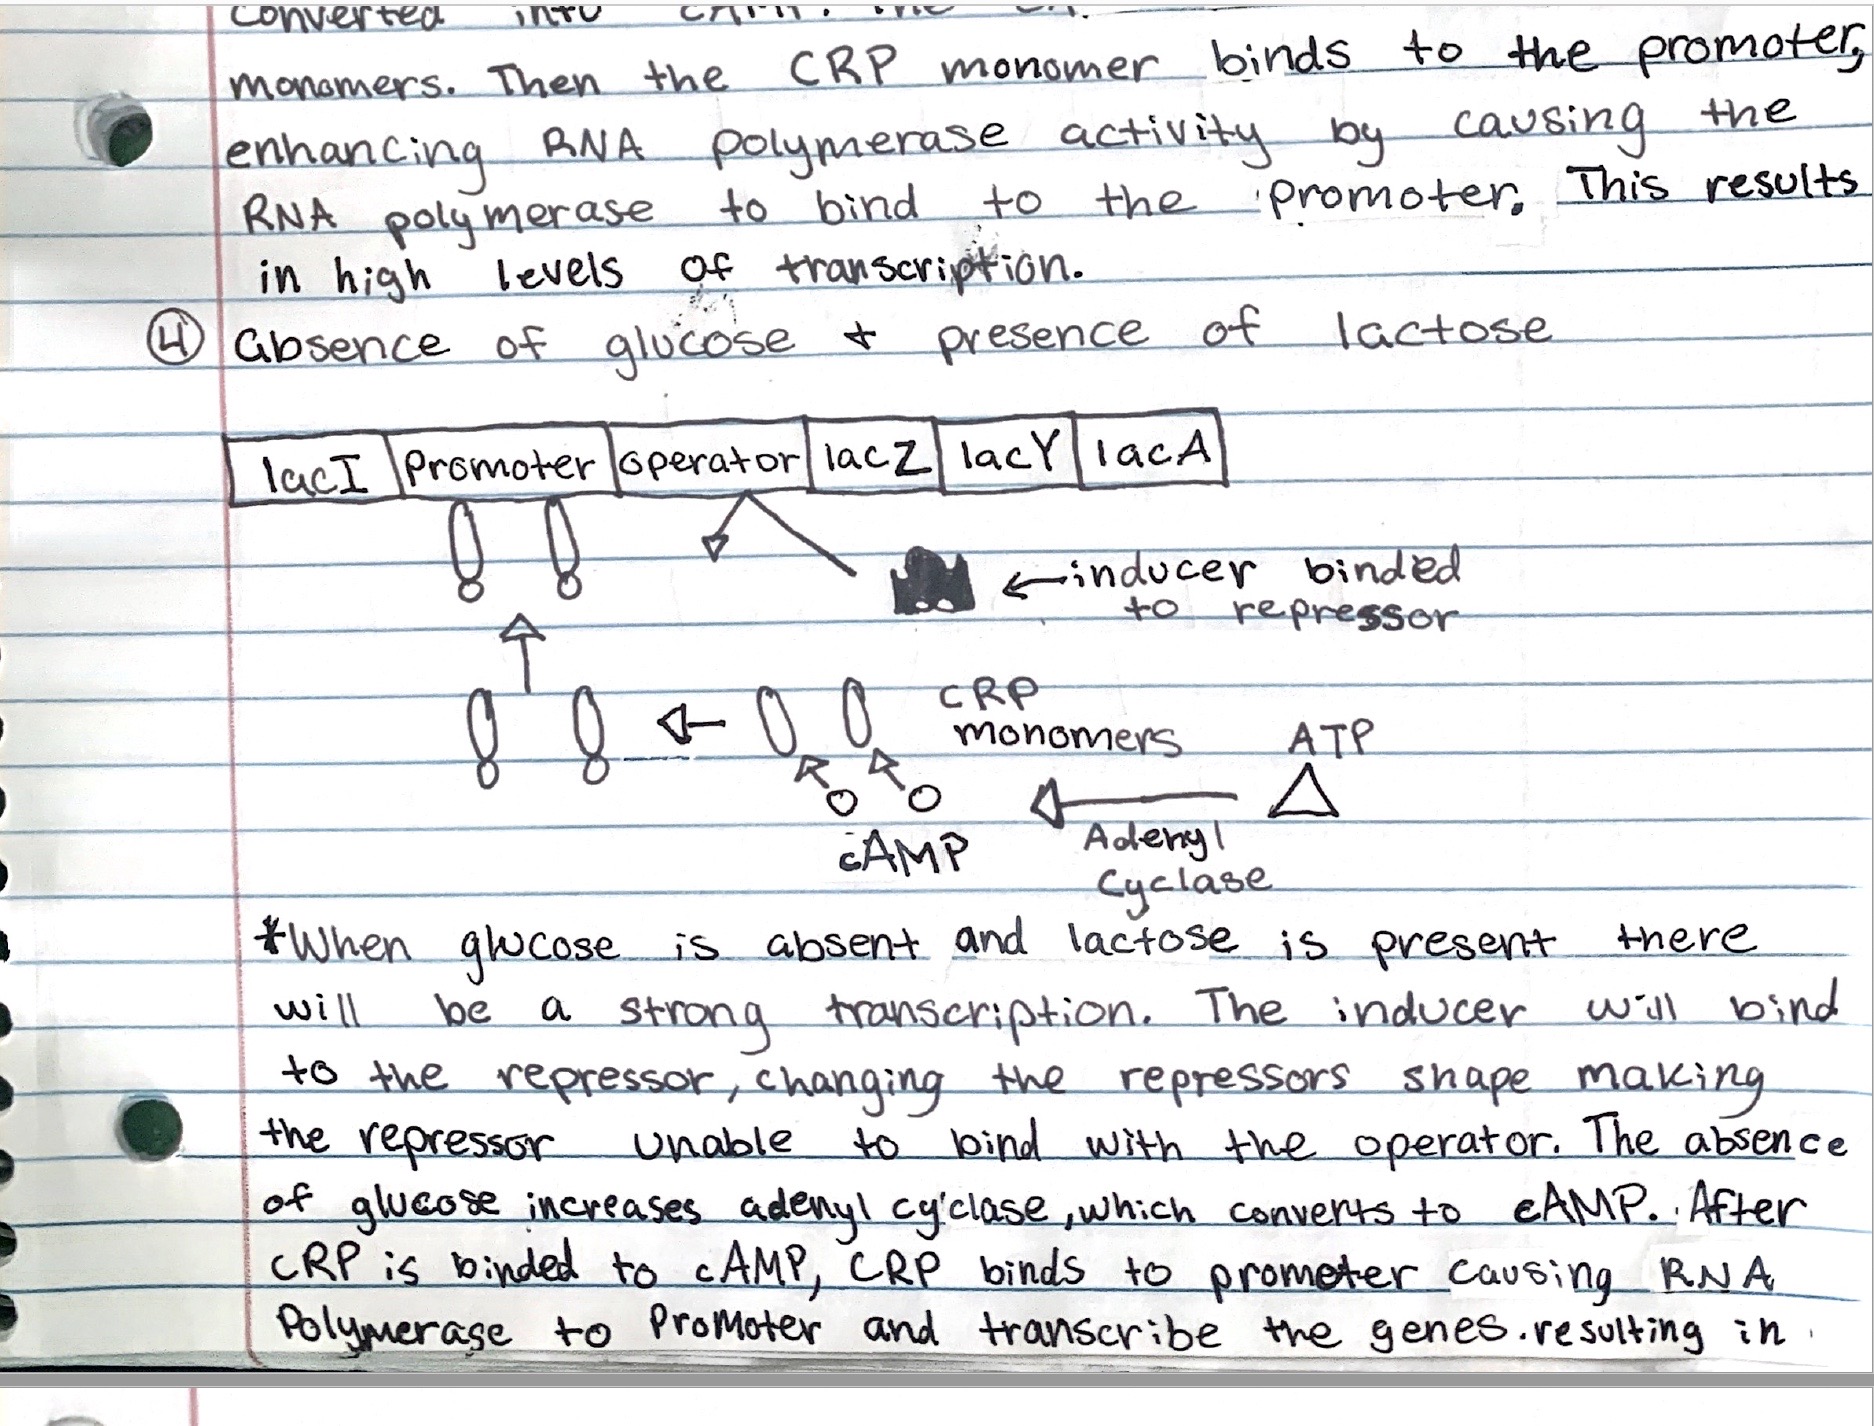 converted into cAMP. The
monomers. Then the CRP monomer binds to the promoter,
enhancing RNA polymerase activity by causing the
RNA polymerase to bind to the promoter. This results
in high levels of transcription.
④ absence of glucose + presence of lactose
lacI Promoter operator lacZ lacY lacA
←inducer binded
to repressor
CRP
monomers
ATP
cAMP
Adenyl
Cyclase
*When glucose is absent and lactose is present there
will be a strong transcription. The inducer will bind
to the repressor, changing the repressors shape making
the repressor unable to bind with the operator. The absence
of glucose increases adenyl cyclase, which converts to cAMP. After
CRP is binded to cAMP, CRP binds to promoter causing RNA
Polymerase to Promoter and transcribe the genes. resulting in